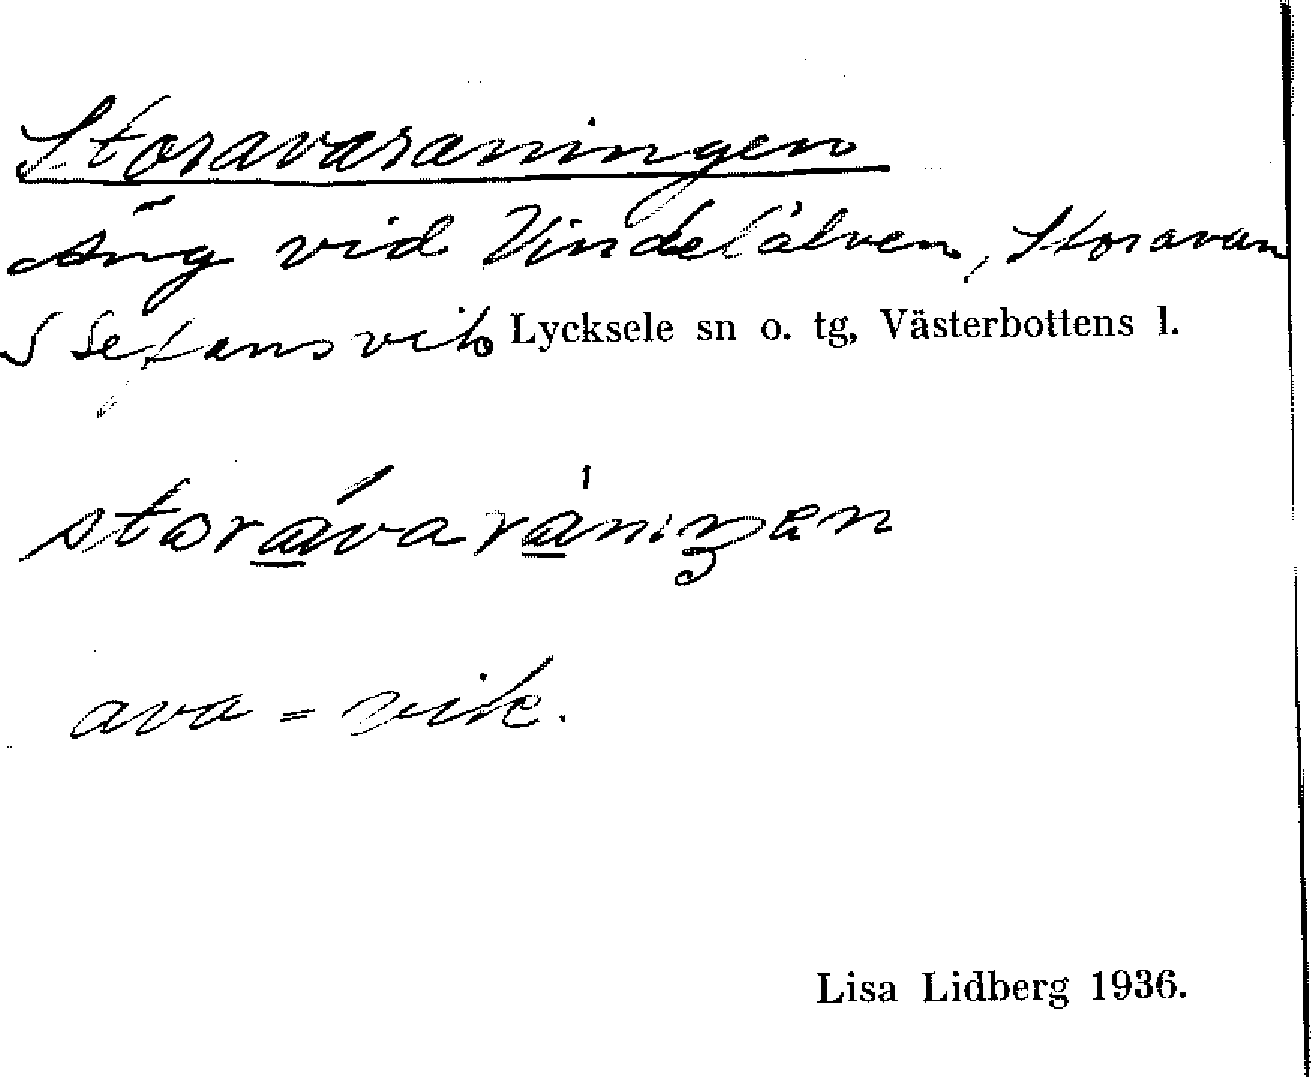 Storavaraningen
Äng vid Vindelälven, Storavan
S Stefansvik Lycksele sn o. tg, Västerbottens l.
storávarániŋən
ava = vik.
Lisa Lidberg 1936.